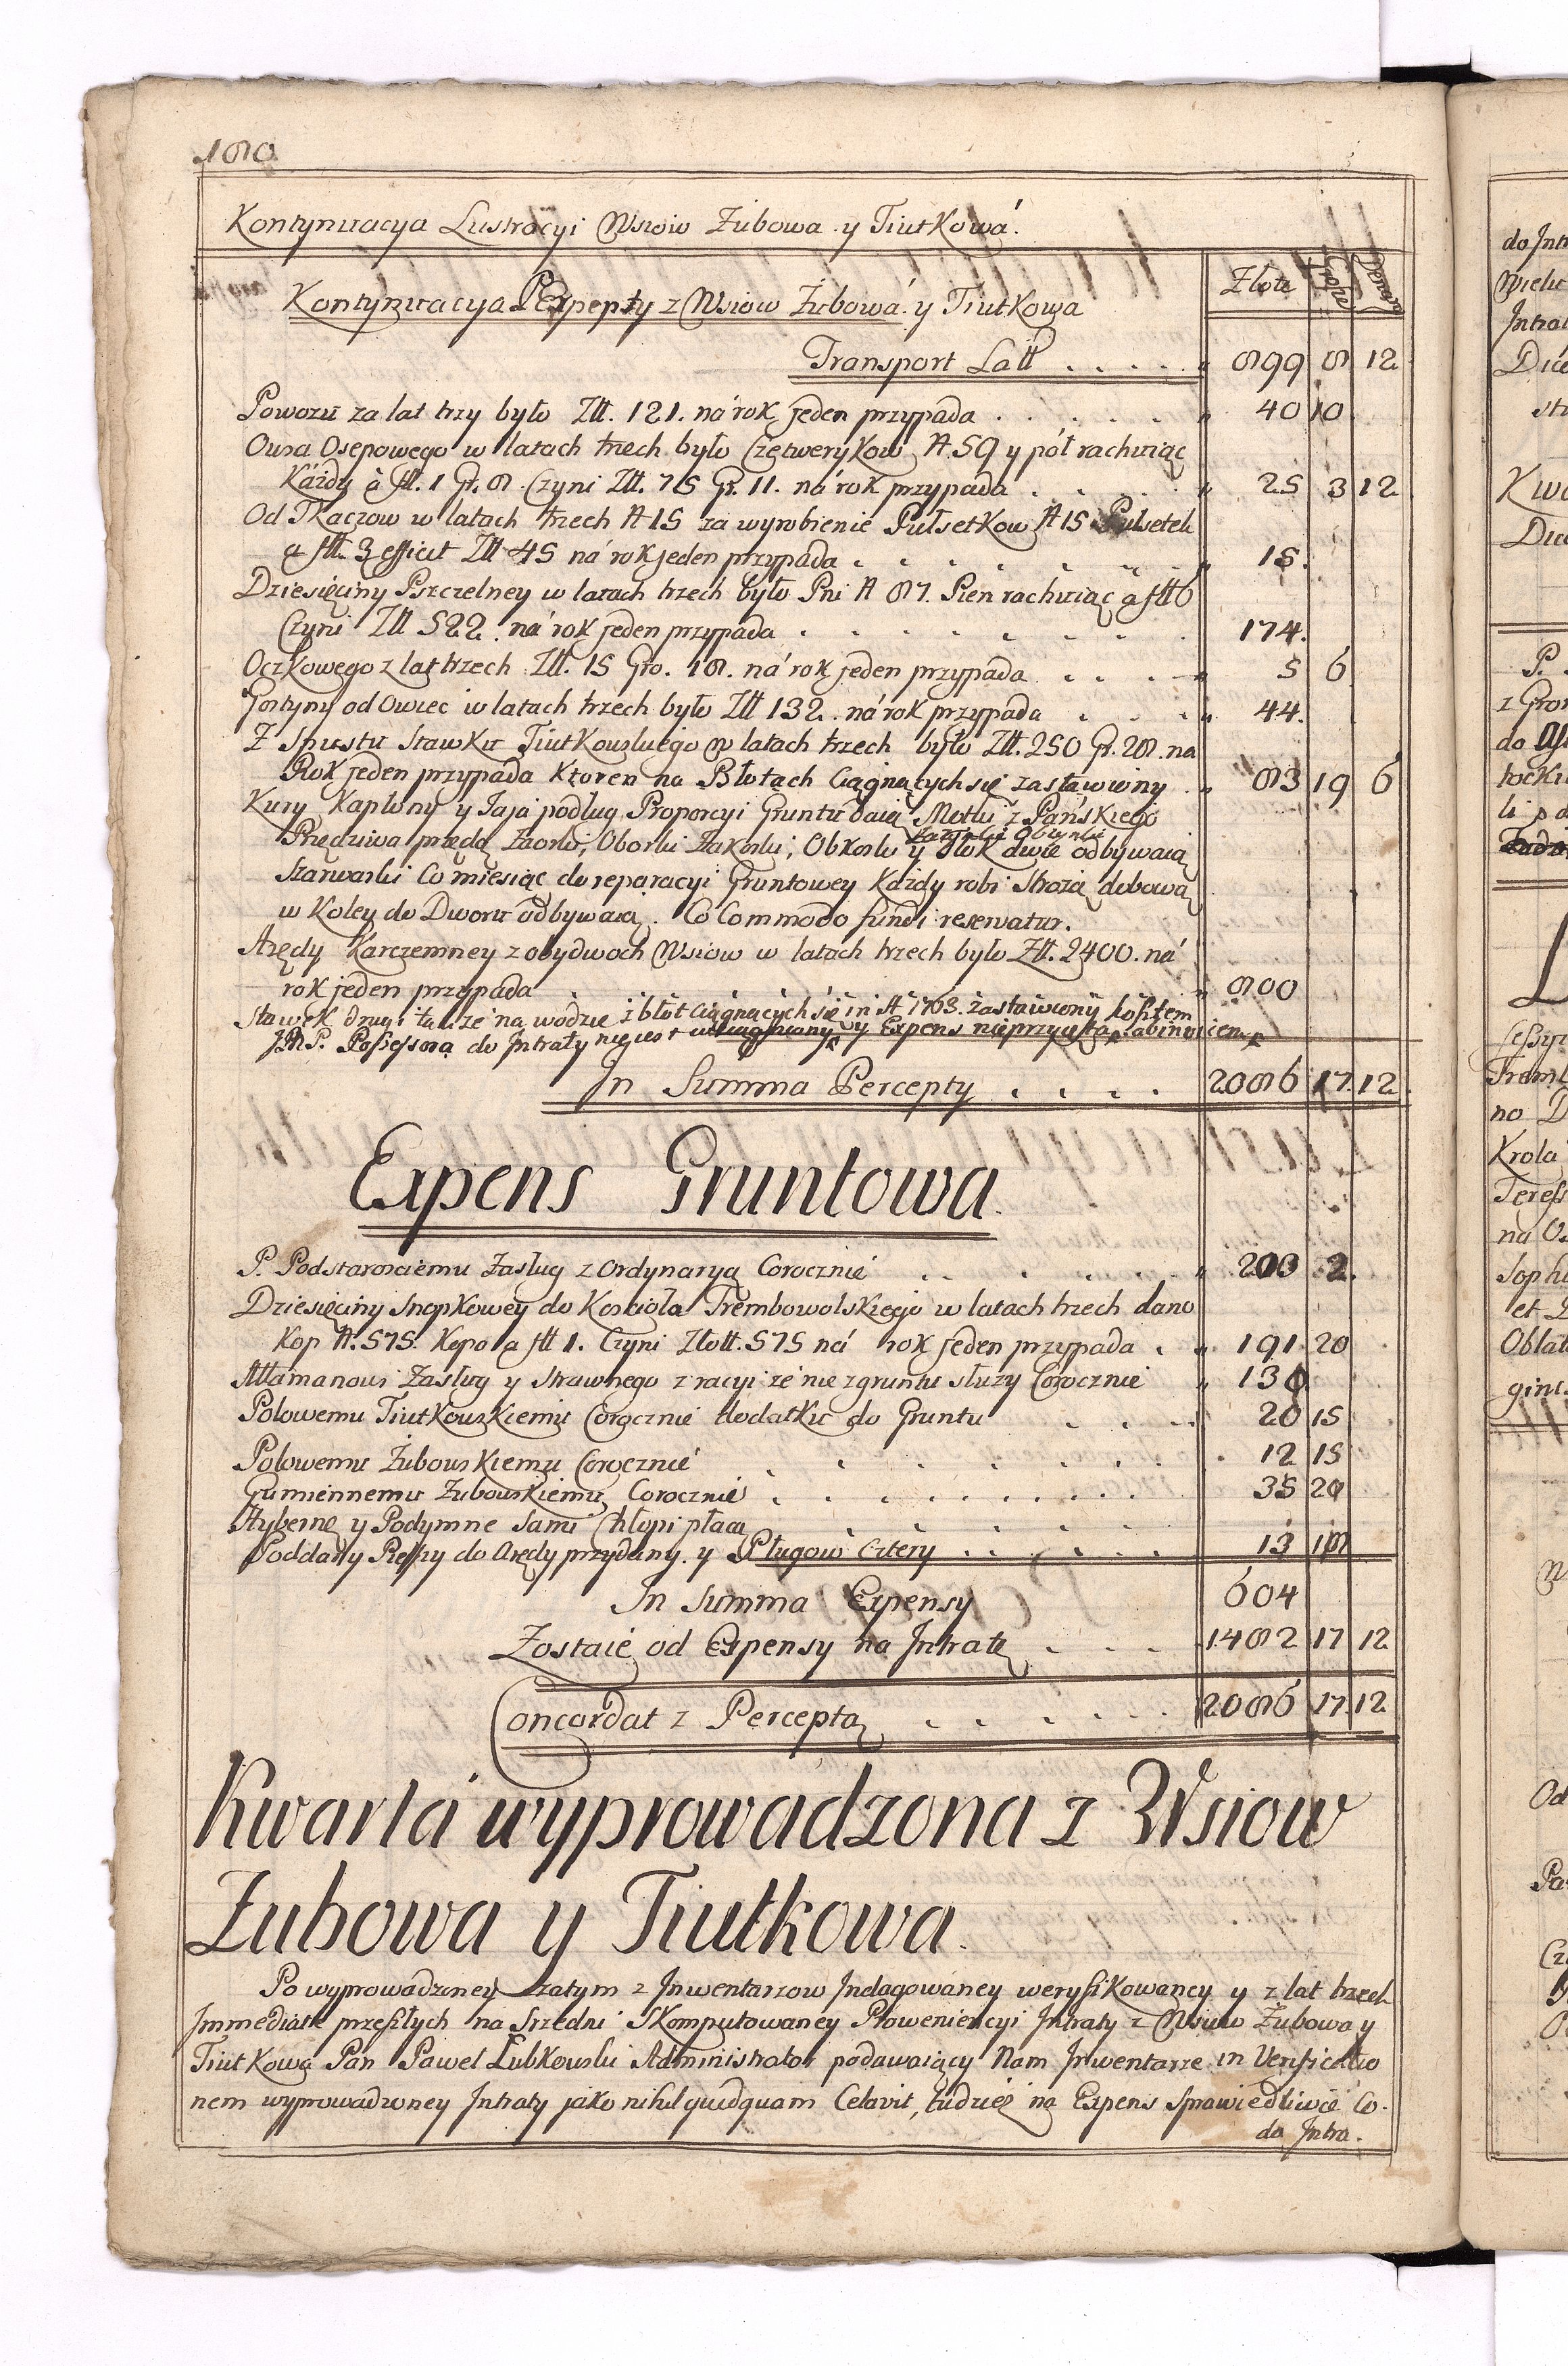 180
Kontynuacya Lustracyi Wsiow Zubowa y Tiutkowa.
Kontynuacya Percepty z Wsiow Zubowa y Tiutkowa Złote Grosze Denary
Transport Latt . . . . . 899 8 12
Powozu za lat trzy było Złł. 121. na rok jeden przypada . . . . . 40 10
Owsa Osepowego w latach trzech było Czetwerykow A 59 y pół rachuiąc
Każdy a fłł. 1 Gr. 8. Czyni Złł. 75 Gr. 11. na rok przypada . . . . 25 3 12
Od Tkaczow w latach trzech A 15 za wyrobienie Pułsetkow A 15 Pulsetek
a fłł. 3 efficit Złł 45 na rok jeden przypada . . . . . 15.
Dziesięciny Pszczelney w latach trzech było Pni A 87. Pien rachuiąc a fłł 6
Czyni Złł 522. na rok jeden przypada . . . . . 174.
Oczkowego z lat trzech Złł. 15 Gro. 18. na rok jeden przypada . . . . 5 6
Gostyny od Owiec w latach trzech było Złł 132. na rok przypada . . . 44.
Z Spustu Stawku Tiutkowskiego w latach trzech było Złł. 250 Gr. 28. na
Rok jeden przypada Ktoren na Błotach Ciągnących się zastawiony . 83 19 6
Kury Kapłony y Jaja podług Proporcyi Gruntu daią Motki z Pańskiego
Przędziwa przędą Zaorki, Oborki Zakoski, Obkoski y Tłok dwie odbywaią
Szarwarki Co miesiąc do reparacyi Gruntowey Kazdy robi Strożą dobową
w Koley do Dworu odbywaią. Co Commodo fundi reservatur.
Arędy Karczemney z obydwoch Wsiow w latach trzech było Złł. 2400. na
rok jeden przypada 800
Stawek drugi także na wodzie z błot Ciągnących się in A 1763. zastawiony kosztem
JMP. Possessora do Intraty nie iest y Expens nie przyięta
In Summa Percepty . . . . 2086 17. 12.
Expens Gruntowa.
P. Podstarosciemu Zasług z Ordynaryą Corocznie . . . . . 200 2.
Dziesięciny Snopkowey do Kosciola Trembowolskiego w latach trzech dano
Kop A. 575. Kopo a fłł 1. Czyni Złott. 575 na rok jeden przypada . 191 20
Attamanowi Zasług y Strawnego z racyi że nie z gruntu służy Corocznie 130
Polowemu Tiutkowskiemu Corocznie dodatku do Gruntu . . . 20 15
Polowemu Zubowskiemu Corocznie . . . . . . 12 15
Gumiennemu Zubowskiemu Corocznie . . . . . . . 35 20
Hybernę y Podymne Sami Chłopi płacą . . . . .
Poddany Pieszy do Arędy przydany. y Pługow Cztery . . . . . 13 18
In Summa Expensy 604
Zostaie od Expensy na Intratę . . . 1482 17 12
Concordat z Perceptą . . . . . . 2086 17. 12.
Kwarta wyprowadzona z Wsiow
Zubowa y Tiutkowa.
Po wyprowadzoney zatym z Inwentarzow Indagowaney weryfikowaney y z lat trzech
Immediate przeszłych na Srzedni Skomputowaney Proweniencyi Intraty z Wsiow Zubowa y
Tiutkowa Pan Paweł Lubkowski Administrator podawaiący Nam Inwentarze in Verificatio
nem wyprowadzoney Intraty jako nihil quidquam Celavit, tudzież na Expens Sprawiedliwie Co-
do Intra.